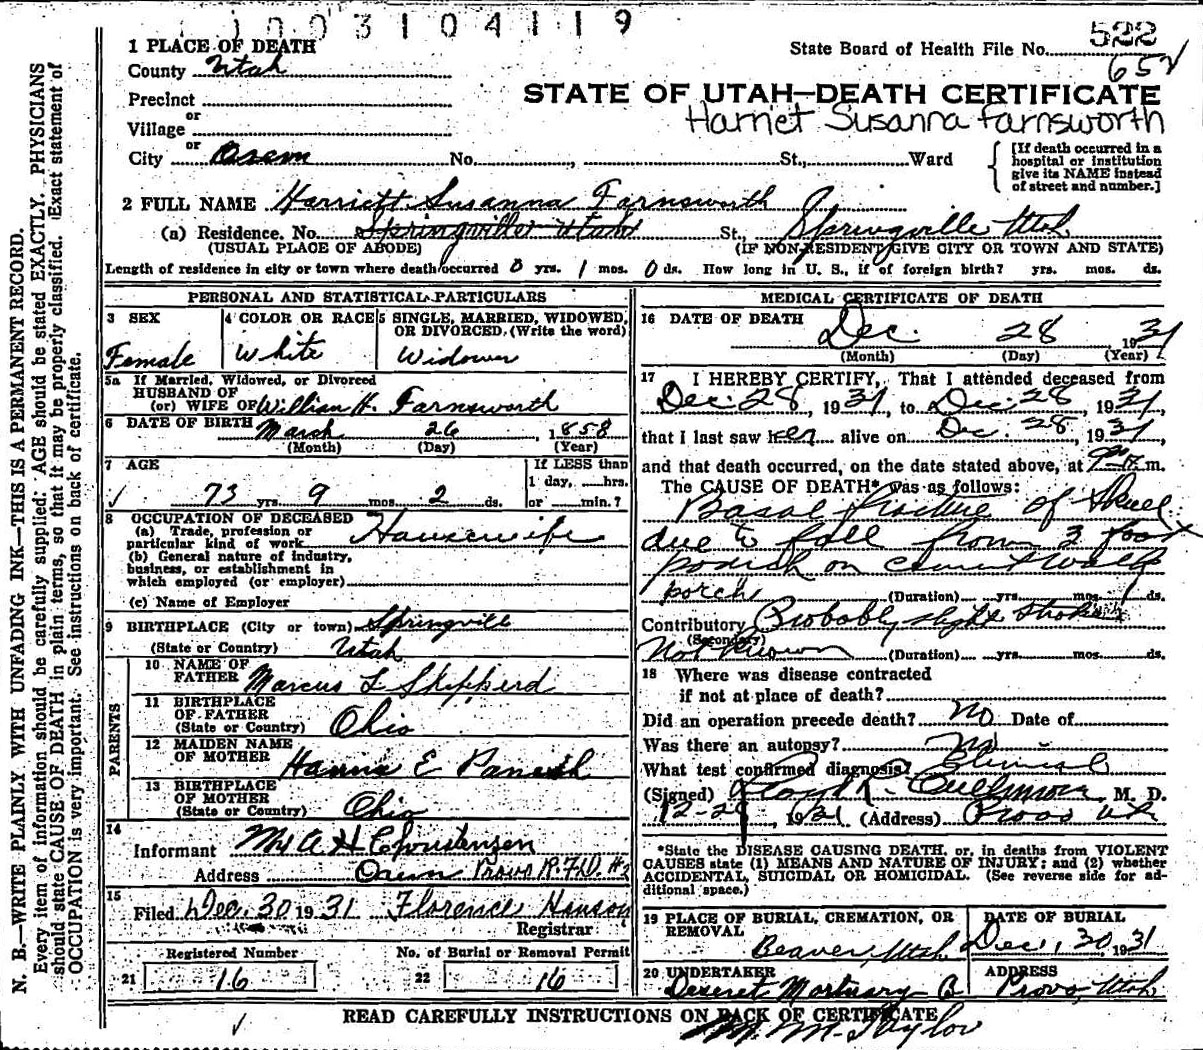 1003104119
1 PLACE OF DEATH
State Board of Health File No. 522
County Utah
652
Precinct
STATE OF UTAH—DEATH CERTIFICATE
or
Village
Harriet Susanna Farnsworth
or
City Orem No. , St., Ward
[If death occurred in a hospital or institution give its NAME instead of street and number.]
2 FULL NAME Harriett Susanna Farnsworth
(a) Residence. No. Springville Utah St., Springville Utah
(USUAL PLACE OF ABODE) (IF NON-RESIDENT GIVE CITY OR TOWN AND STATE)
Length of residence in city or town where death occurred 0 yrs. 1 mos. 0 ds. How long in U. S., if of foreign birth? yrs. mos. ds.
PERSONAL AND STATISTICAL PARTICULARS
3 SEX
Female
4 COLOR OR RACE
White
5 SINGLE, MARRIED, WIDOWED,
OR DIVORCED. (Write the word)
Widower
5a If Married, Widowed, or Divorced
HUSBAND OF
(or) WIFE OF William H. Farnsworth
6 DATE OF BIRTH March 26, 1858
(Month) (Day)
7 AGE
If LESS than
1 day, hrs.
73 yrs. 9 mos. 2 ds. or min.?
8 OCCUPATION OF DECEASED
(a) Trade, profession or
particular kind of work Housewife
(b) General nature of industry,
business, or establishment in
which employed (or employer)
(c) Name of Employer
9 BIRTHPLACE (City or town) Springville
(State or Country) Utah
PARENTS
10 NAME OF
FATHER Marcus L Shepperd
11 BIRTHPLACE
OF FATHER
(State or Country) Ohio
12 MAIDEN NAME
OF MOTHER Hanna E
13 BIRTHPLACE
OF MOTHER
(State or Country) Ohio
14
Informant Mrs A H Christensen
Address Orem Provo R.F.D. #2
15
Filed Dec. 30 1931 Florence Hanson
Registrar
Registered Number
21 16
No. of Burial or Removal Permit
22 16
MEDICAL CERTIFICATE OF DEATH
16 DATE OF DEATH
Dec. 28 1931
(Month) (Day) (Year)
17 I HEREBY CERTIFY, That I attended deceased from
Dec. 28, 1931, to Dec. 28, 1931,
that I last saw her alive on Dec. 28, 1931,
and that death occurred, on the date stated above, at 9 m.
The CAUSE OF DEATH* was as follows:
Basal fracture of Skull
due to fall from 3 foot
on cement walk
porch (Duration) yrs. mos. 1 ds.
Contributory Probably slight Stroke
(Secondary)
Not Known (Duration) yrs. mos. ds.
18 Where was disease contracted
if not at place of death?
Did an operation precede death? No Date of
Was there an autopsy? No
What test confirmed diagnosis? Clinical
(Signed) Lloyd L. Cullimore, M. D.
12-29, 1931 (Address) Provo Ut
*State the DISEASE CAUSING DEATH, or, in deaths from VIOLENT
CAUSES state (1) MEANS AND NATURE OF INJURY; and (2) whether
ACCIDENTAL, SUICIDAL OR HOMICIDAL. (See reverse side for ad-
ditional space.)
19 PLACE OF BURIAL, CREMATION, OR
REMOVAL
Beaver, Utah
DATE OF BURIAL
Dec. 30, 1931
20 UNDERTAKER
Deseret Mortuary Co
ADDRESS
Provo, Utah
READ CAREFULLY INSTRUCTIONS ON BACK OF CERTIFICATE
M. M. Taylor
N. B.—WRITE PLAINLY WITH UNFADING INK—THIS IS A PERMANENT RECORD.
Every item of information should be carefully supplied. AGE should be stated EXACTLY. PHYSICIANS
should state CAUSE OF DEATH in plain terms, so that it may be properly classified. Exact statement of
OCCUPATION is very important. See instructions on back of certificate.